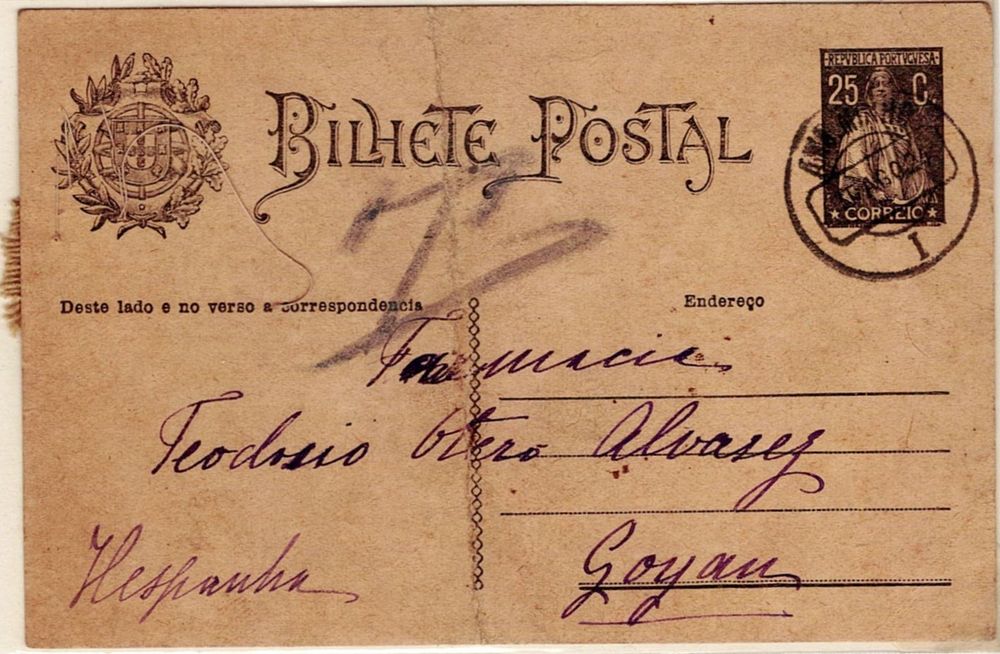 BILHETE POSTAL
REPVBLICA PORTVGVESA
25 C.
CORREIO
I
Deste lado e no verso a correspondencia
Endereço
T
Farmacia
Teodosio Otero Alvarez
Goyan
Hespanha